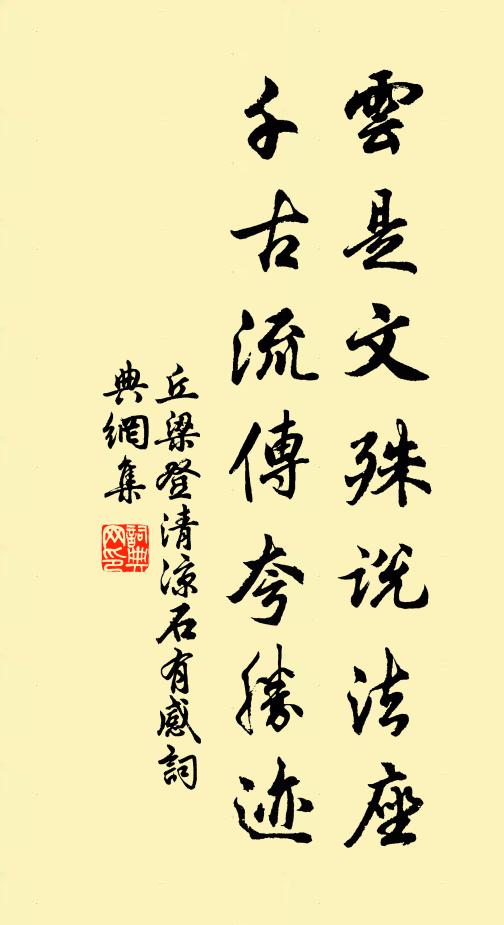 雲是文殊説法座
千古流傳夸勝迹
丘梁登清涼石有感詞
典網集
詞典
网印